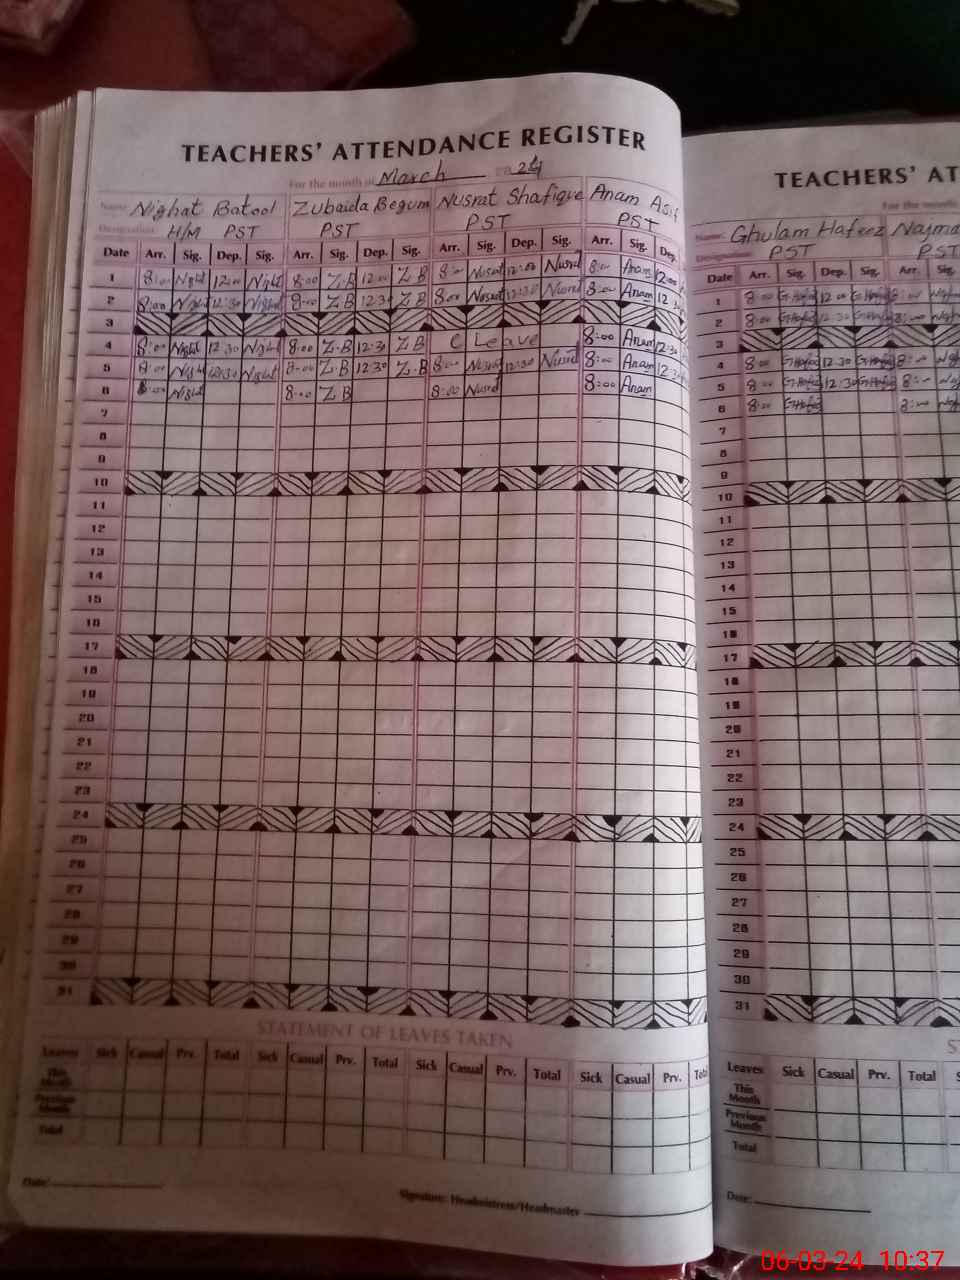 TEACHERS' ATTENDANCE REGISTER
For the month of March 2024
Name: Nighat Batool Zubaida Begum Nusrat Shafique Anam Asif
Designation: H/M PST PST PST PST
Date Arr. Sig. Dep. Sig. Arr. Sig. Dep. Sig. Arr. Sig. Dep. Sig. Arr. Sig. Dep.
1 8:00 Night 12:00 Night 8:00 Z.B 12:00 Z.B 8:00 Nusrat 12:00 Nusrat 8:00 Anam 12:00
2 8:00 Night 12:30 Night 8:00 Z.B 12:30 Z.B 8:00 Nusrat 12:30 Nusrat 8:00 Anam 12
3
4 8:00 Night 12:30 Night 8:00 Z.B 12:30 Z.B C Leave 8:00 Anam 12:30
5 8:00 Night 12:30 Night 8:00 Z.B 12:30 Z.B 8:00 Nusrat 12:30 Nusrat 8:00 Anam 12:3
6 8:00 Night 8:00 Z.B 8:00 Nusrat 8:00 Anam
7
8
9
10
11
12
13
14
15
16
17
18
19
20
21
22
23
24
25
26
27
28
29
30
31
STATEMENT OF LEAVES TAKEN
Leaves Sick Casual Prv. Total Sick Casual Prv. Total Sick Casual Prv. Total Sick Casual Prv. Total
This Month
Previous Month
Total
Date:
Signature: Headmistress/Headmaster
TEACHERS' AT
For the month
Name: Ghulam Hafeez Najma
Designation: PST PST
Date Arr. Sig. Dep. Sig. Arr. Sig.
1 8:00 G.Hafeez 12:00 G.Hafeez 8:00
2 8:00 G.Hafeez 12:30 G.Hafeez 8:00
3
4 8:00 G.Hafeez 12:30 G.Hafeez 8:00
5 8:00 G.Hafeez 12:30 G.Hafeez 8:00
6 8:00 G.Hafeez 8:00
7
8
9
10
11
12
13
14
15
16
17
18
19
20
21
22
23
24
25
26
27
28
29
30
31
Leaves Sick Casual Prv. Total
This Month
Previous Month
Total
Date:
06-03-24 10:37